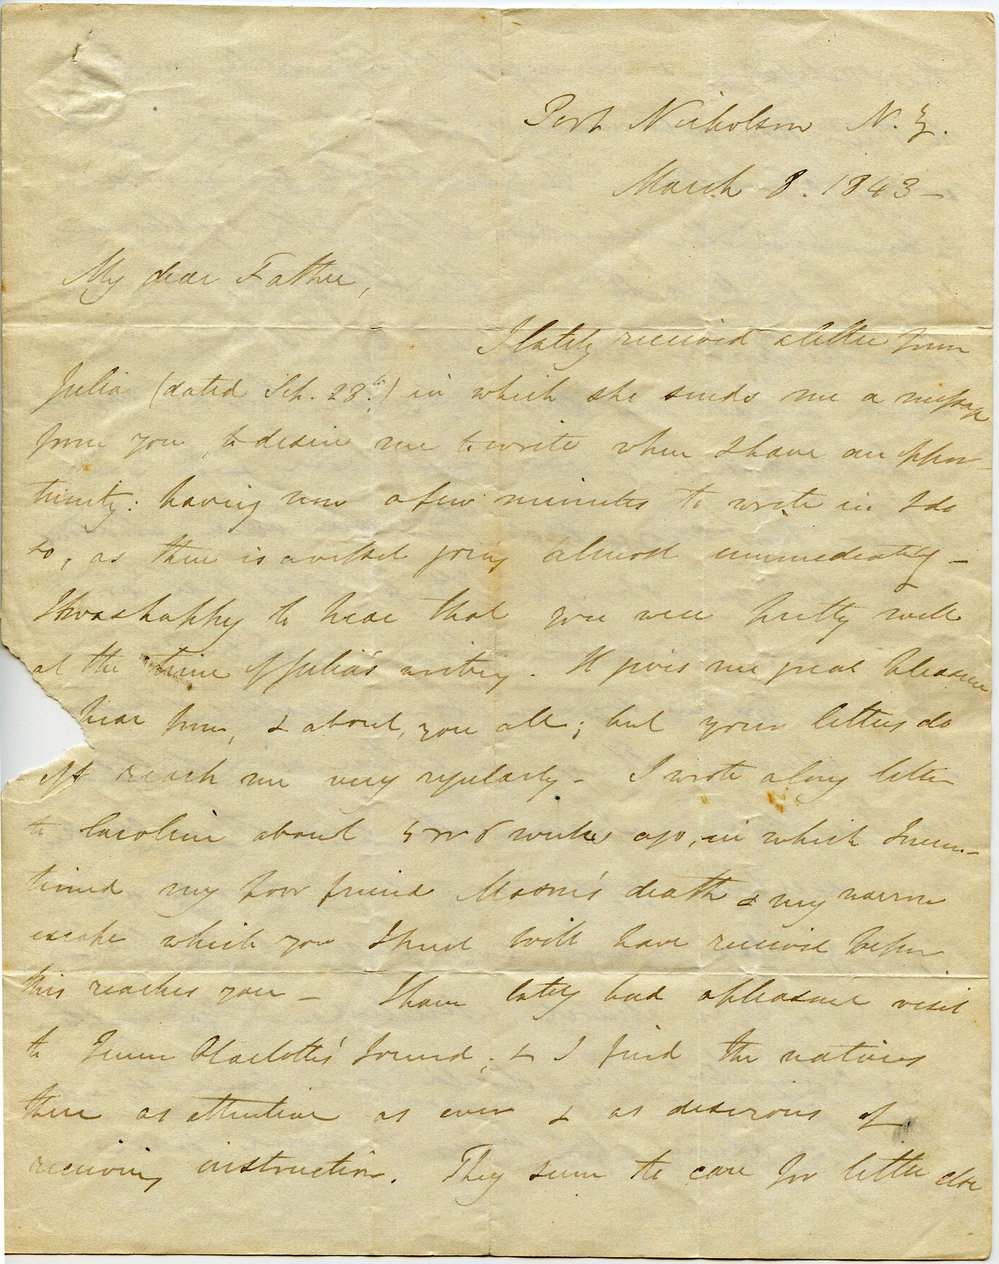 Port Nicholson N.Z.
March 8. 1843–
My dear Father,
I lately received a letter from
Julia (dated Sep. 28th.) in which she sends me a message
from you, to desire me to write when I have an oppor-
tunity: having now a few minutes to write in I do
so, as there is a vessel going almost immediately –
I was happy to hear that you were pretty well
at the time of Julia's writing. It gives me great pleasure
hear from, & about, you all; but your letters do
not reach me very regularly – I wrote a long letter
to Caroline about 5 or 6 weeks ago, in which I men-
tioned my poor friend Mason's death & my narrow
escape which you I trust will have received before
this reaches you – I have lately had a pleasant visit
to Queen Charlotte's Sound, & I find the natives
there as attentive as ever & as desirous of
receiving instruction. They seem to care for little else